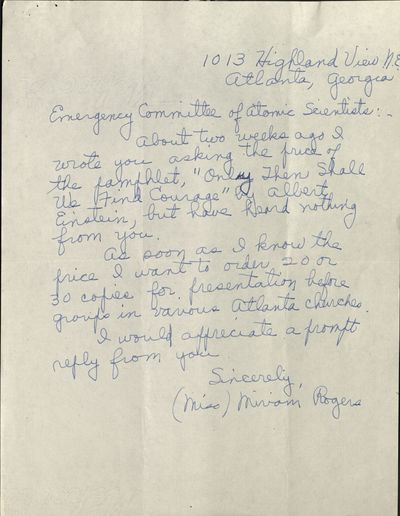 1013 Highland View N.E
Atlanta, Georgia
Emergency Committee of Atomic Scientists:-
About two weeks ago I
wrote you asking the price of
the pamphlet, "Only Then Shall
We Find Courage" by Albert
Einstein, but have heard nothing
from you.
As soon as I know the
price I want to order 20 or
30 copies for presentation before
groups in various Atlanta churches.
I would appreciate a prompt
reply from you
Sincerely,
(Miss) Miriam Rogers